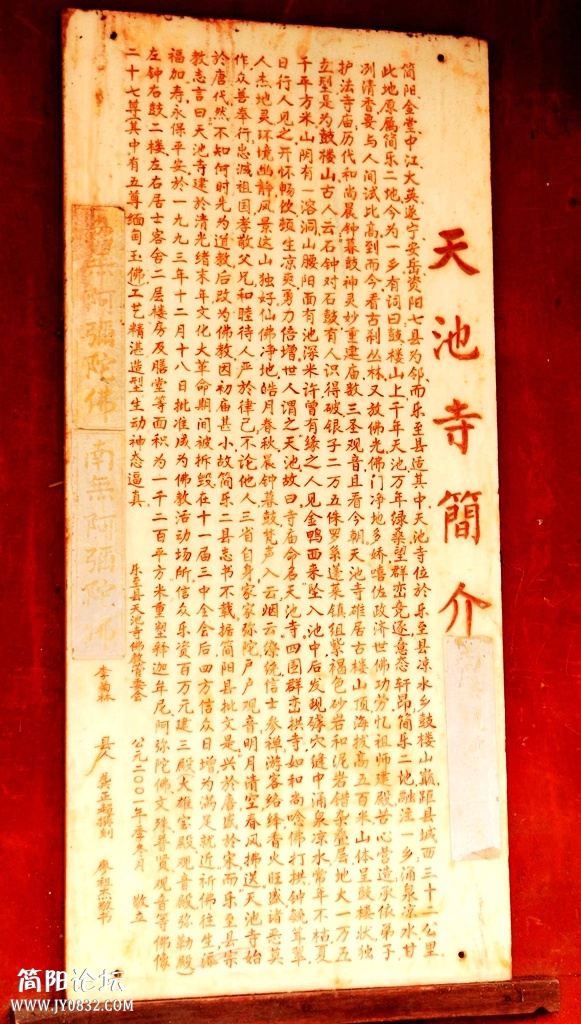 天池寺簡介
简阳金堂中江大英遂宁安岳资阳七县为邻而乐至县适其中天池寺位於乐至县凉水乡鼓楼山巅距县城西三十二公里
此地原属简乐二地今为一乡有词曰鼓楼山上千年天池万年绿桑望群峦竞逐意态轩昂简乐二地融注一乡涌泉凉水甘
冽清香要与人间试比高到而今看古刹丛林又放佛光佛门净地多娇嘻佐政济世佛功劳忆祖师建殿苦心营造承依弟子
护法寺庙历代和尚晨钟暮鼓神灵妙重建庙数三圣观音且看今朝天池寺雄居古楼山顶海拔高五百米山体呈鼓楼状独
立型是为鼓楼山古人云石钟对石鼓有人识得破银子二万五侏罗系蓬莱镇组紫褐色砂岩和泥岩错杂叠居地大一万五
千平方米山阴有一溶洞山腰阳面有池深米许曾有缘之人见金鸭西来坠入池中后发现罅穴缝中涌泉凉水常年不枯夏
日行人见之开怀畅饮顿生凉爽勇力倍增世人谓之天池故曰寺庙命名天池寺四围群峦拱寺如和尚唸佛打拱钟毓萃革
人杰地灵环境幽静风景这山独好仙佛净地皓月春秋晨钟暮鼓梵声入云烟云缭绕信士参禅游客络绎香火旺盛诸恶莫
作众善奉行忠诚祖国孝敬父兄和睦待人严於律己不论他人三省自身家家弥陀户户观音明月清空春风拂送天池寺始
於唐代然不知何时先为道教后改为佛教因初庙甚小故简乐二县志书不载据简阳县批文是兴於唐盛於宋而乐至县宗
教志言曰天池寺建於清光绪末年文化大革命期间被拆毁在十一届三中全会后四方信众日增为满足就近祈佛往生添
福加寿永保平安於一九九三年十二月十八日批准成为佛教活动场所信众乐资百万元建三殿大雄宝殿观音殿弥勒殿
左钟右鼓二楼左右居士客舍二层楼房及膳堂等面积为一千二百平方米重塑释迦牟尼阿弥陀佛文殊普贤观音等佛像
二十七尊其中有五尊缅甸玉佛工艺精湛造型生动神态逼真
乐至县天池寺佛教管委会
公元二00一年季冬月 敬立
李菊林
县人 龚正超撰刻 廖祖杰敬书
無阿彌陀佛
南無阿彌陀佛
简阳论坛
www.JY0832.com